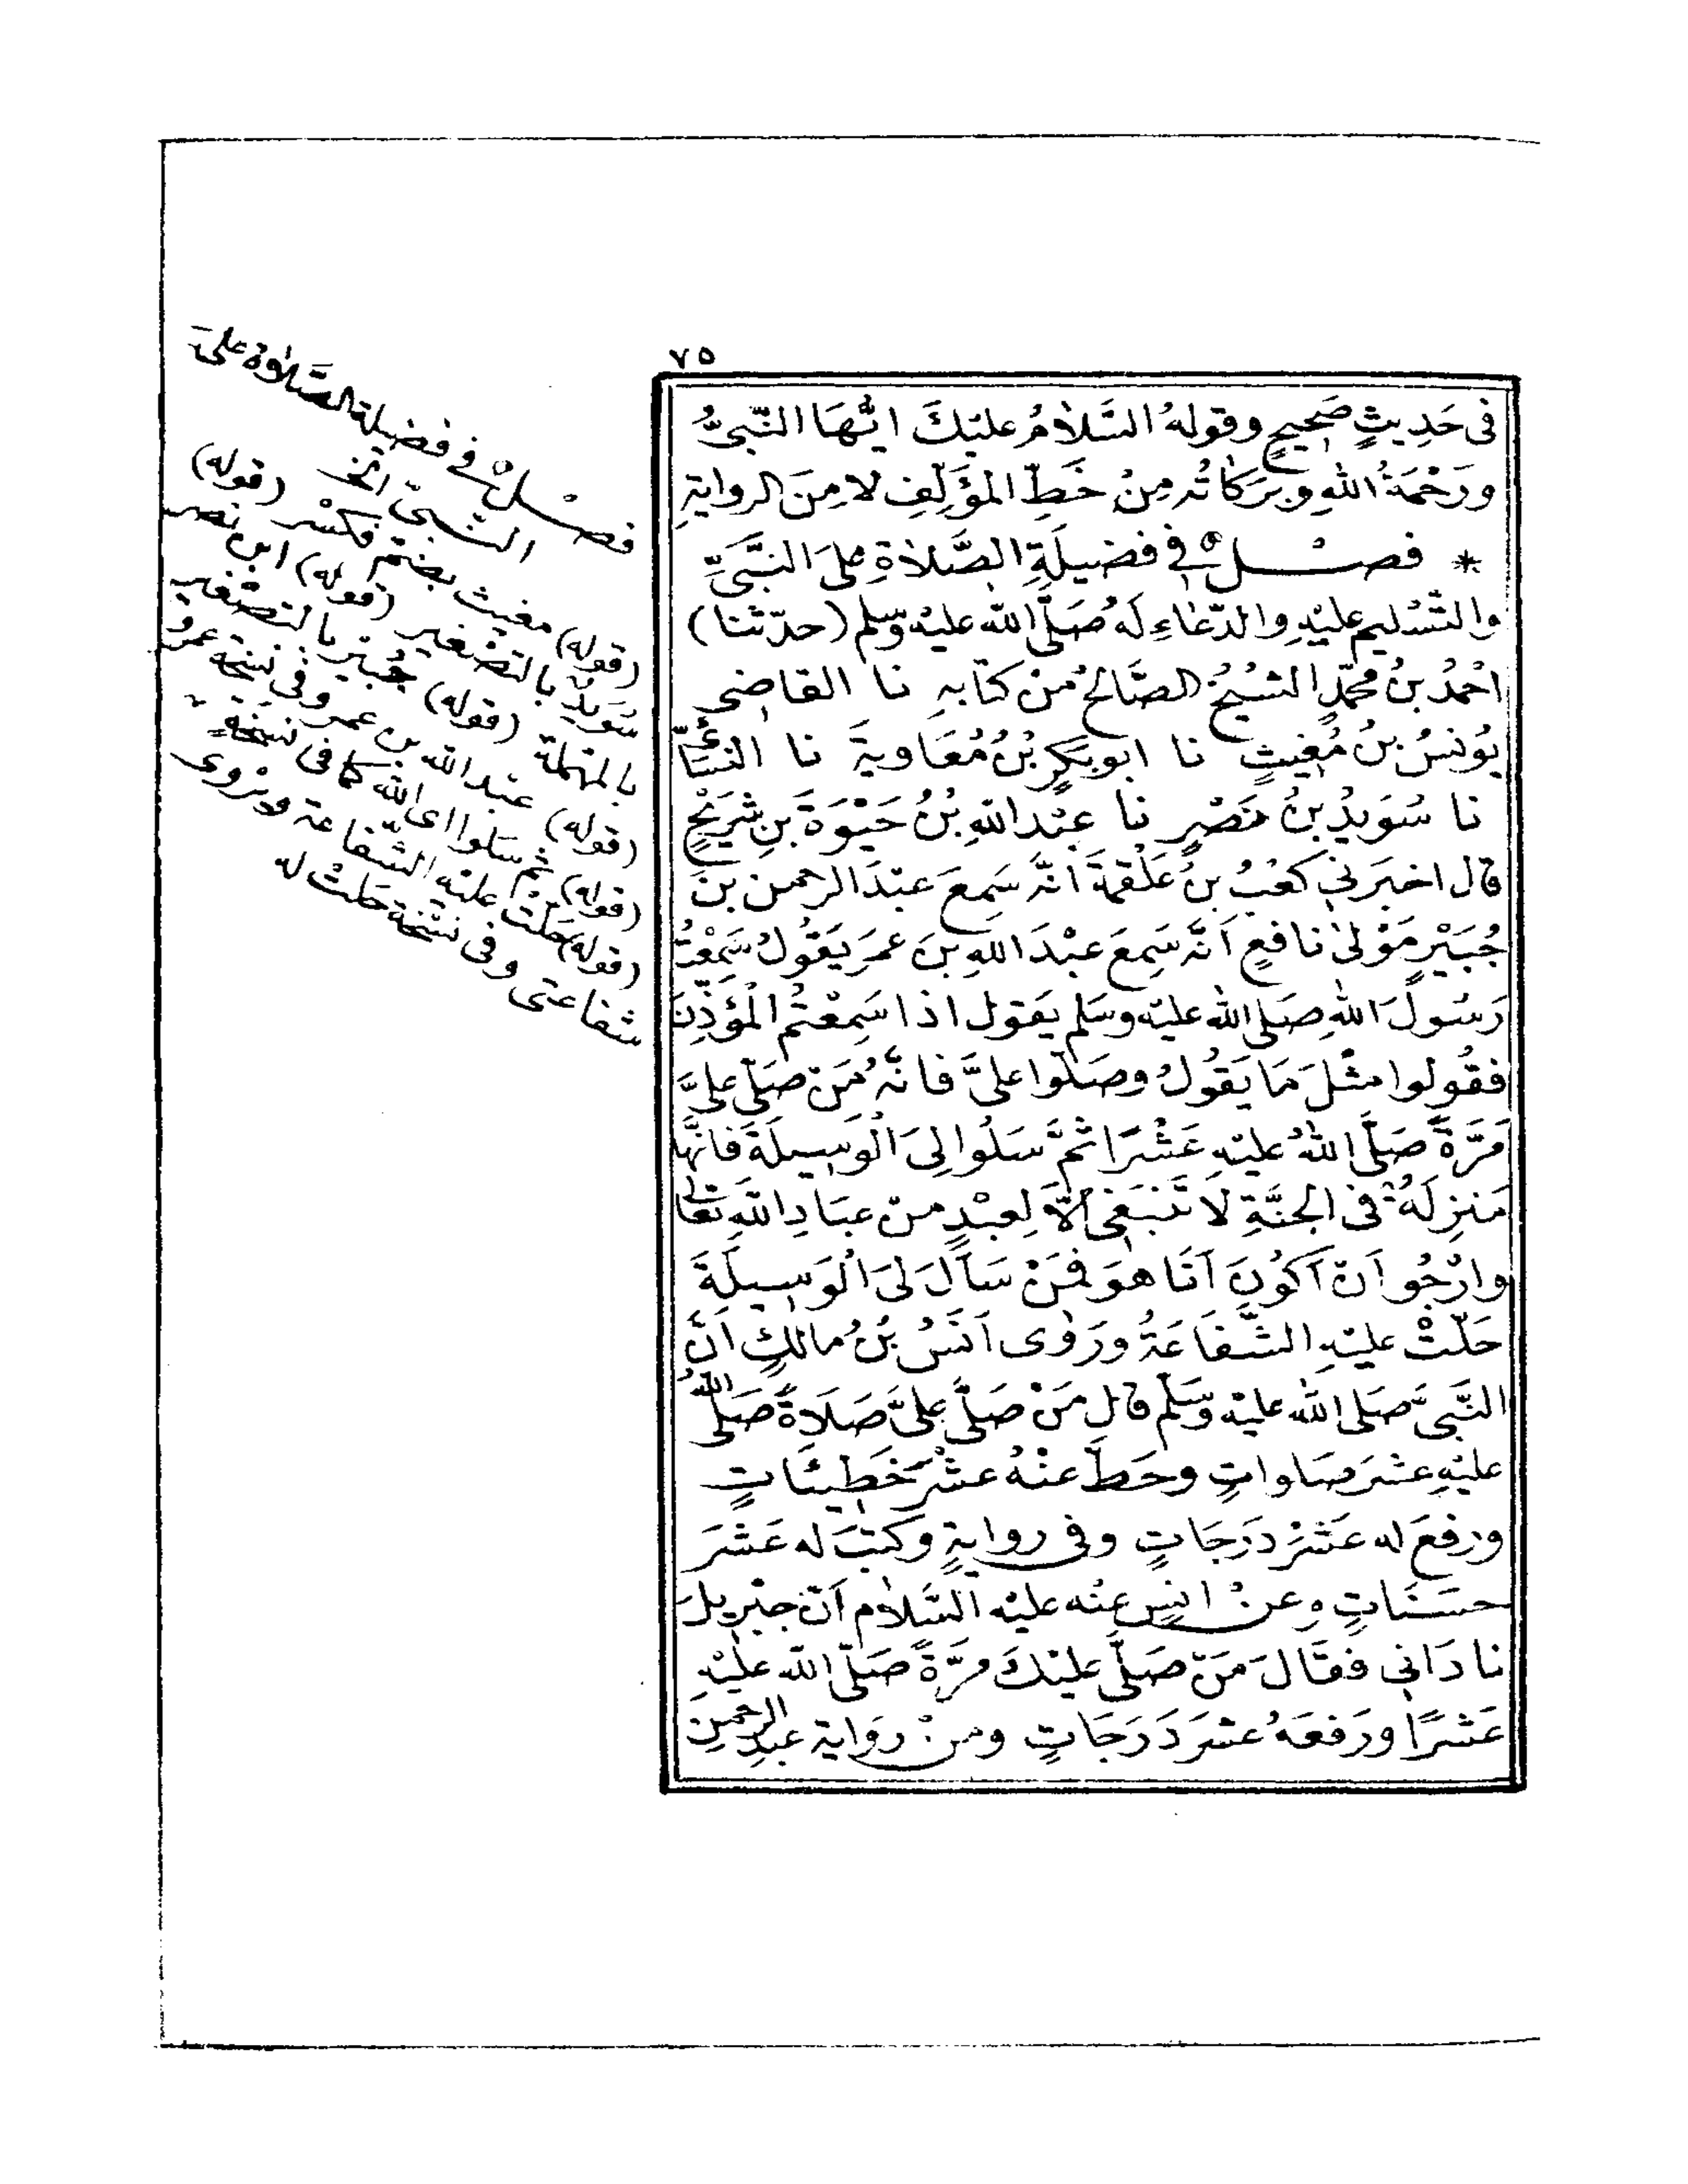 ٧٥
فى حَدِيثٍ صَحِيحٍ وقولهُ السَّلَامُ عليْكَ ايُّهَا النَّبِىُّ
ورَحْمَةُ اللهِ وبَرَكَاتُه مِنْ خَطِّ المؤَلِّفِ لا مِنَ الروايةِ
* فصْــل فى فضيلَةِ الصَّلاةِ علىَ النَّبِىِّ
والتَّسْليمِ عليْهِ والدّعَاءِ لَهُ صَلَّى الله عليْه وسّلم (حدّثنا)
احْمَدُ بنُ محمّدٍ الشيْخُ الصَّالحُ مِنْ كتابهِ نا القاضى
يُونسُ بنُ مُغِيثٍ نا ابو بَكرٍ بْنُ مُعَاويةَ نا النسَّائىّ
نا سُوَيدُ بنُ نَصْرٍ نا عبْد اللهِ بْنُ حَيْوَةَ بنِ شرَيْحٍ
قال اخبَرَنى كعْبُ بنُ عَلْقمَةَ انّه سَمِعَ عبْدَ الرحمن بنَ
جُبَيْرٍ مَوْلىٰ نافعٍ اَنَّه سَمِعَ عبْدَ اللهِ بنَ عمَرَ يَقُولُ سَمِعْتُ
رَسُولَ اللهِ صَلى الله عليْه وسَلم يَقول اذا سَمِعْتُم الْمُؤَذِّنَ
فقُولوا مثْلَ مَا يَقُولُ وصَلّوا علىَّ فانّهُ مَنْ صَلّى علىَّ
مَرَّةً صَلَّى اللهُ عليْهِ عَشْرًا ثُمَّ سَلُوا لِىَ الْوَسِيلَةَ فَانَّهَا
مَنزِلَةٌ فى الجنَّةِ لَا تَنبَغى اِلّا لِعبْدٍ منْ عبَادِ اللهِ تعَالى
وارْجُو اَنْ اَكُونَ اَنَا هوَ فمَنْ سَاَلَ لِىَ الْوَسِيلَةَ
حَلّتْ عليْهِ الشَّفَاعَةُ ورَوٰى اَنَسُ بْنُ مالكٍ اَنَّ
النَّبىَّ صَلى الله عليْه وسَلّم قال مَنْ صَلَّى علىَّ صَلَاةً صَلّى اللهُ
عليْهِ عشْرَ صَلواتٍ وحَطَّ عنْهُ عشْرَ خَطِيئَاتٍ
ورفعَ له عَشْرَ دَرَجَاتٍ وفى روايةٍ وكتَبَ له عَشْرَ
حسَنَاتٍ وعنْ انسٍ عنْه عليْه السَّلَام اَنّ جبْريلَ
نادَانى فقَالَ مَنْ صَلَّى عليْكَ مَرَّةً صَلّى الله عليْهِ
عَشْرًا ورَفعَهُ عشْرَ دَرَجَاتٍ ومنْ روَاية عبْدِ الرحمنِ
فصْــل فى فضيلة الصَّلاة على
النَّبىّ الخ
(قوله) مغيث بضمّ فكسْر (قوله)
سُوَيدُ بالتصْغير (قوله) ابن نصر
بالمهملة (قوله) جُبَيْر بالتصْغير
(قوله) عبْد الله بن عمر وفى نسْخة عمرو
(قوله) ثم سَلوا اى الله كما فى نسْخةٍ
(قوله) حَلتْ عليْه الشّفاعة ويُروى
شفاعتى وفى نسْخة حَلتْ له